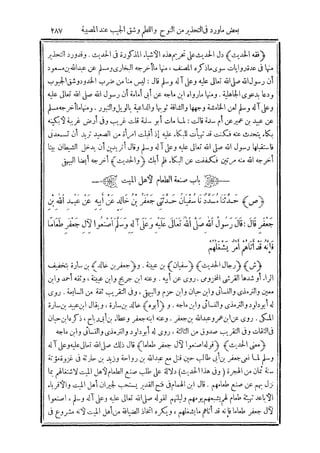 بعض ماورد في التحذير من النوح واللطم وشق الجيب عند المصيبة ٢٨٧
﴿فقه الحديث﴾ دل الحديث على تحريم هذه الأشياء المذكورة في الحديث . وقد ورد التحذير
منها في عدة روايات سوى ماذكره المصنف ، منها ما أخرجه البخارى ومسلم عن عبد الله بن مسعود
أن رسول الله صلى الله تعالى عليه وعلى آله وسلم قال : ليس منا من ضرب الخدود وشق الجيوب
ودعا بدعوى الجاهلية . ومنها مارواه ابن ماجه عن أبى أمامة أن رسول الله صلى الله تعالى عليه
وعلى آله وسلم لعن الخامشة وجهها والشاقة ثوبها والداعية بالويل والثبور . ومنها ما أخرجه مسلم
عن عبيد بن عمير عن أم سلمة قالت : لما مات أبو سلمة قلت غريب وفى أرض غربة لأبكينه
بكاء يتحدث عنه فكنت قد تهيأت للبكاء عليه إذ أقبلت امرأة من الصعيد تريد أن تسعدنى
فاستقبلها رسول الله صلى الله تعالى عليه وعلى آله وسلم وقال أتريدين أن يدخل الشيطان بيتا
أخرجه الله منه مرتين فكففت عن البكاء، فلم أبك ﴿والحديث﴾ أخرجه أيضا البيهقى
باب صنعة الطعام لأهل الميت
﴿ص﴾ حَدَّثَنَا مُسَدَّدٌ نَا سُفْيَانُ حَدَّثَنِى جَعْفَرُ بْنُ خَالِدٍ عَنْ أَبِيهِ عَنْ عَبْدِ اللهِ بْنِ
جَعْفَرٍ قَالَ : قَالَ رَسُولُ اللهِ صَلَّى اللهُ تَعَالَى عَلَيْهِ وَعَلَى آلِهِ وَسَلَّمَ اصْنَعُوا لِآلِ جَعْفَرٍ طَعَامًا
فَإِنَّهُ قَدْ أَتَاهُمْ أَمْرٌ يَشْغَلُهُمْ
﴿ش﴾ ﴿رجال الحديث﴾ ﴿سفيان﴾ بن عيينة . و﴿جعفر بن خالد﴾ بن سارة بتخفيف
الراء أو شدها القرشى المخزومى . روى عن أبيه . وعنه ابن جريج وابن عيينة . وثقه أحمد وابن
معين والترمذى والنسائى وابن حبان وابن حزم والبيهقى ، وفى التقريب ثقة من السابعة . روى
له أبو داود والترمذى والنسائى وابن ماجه . و ﴿أبوه﴾ خالد بن سارة ، ويقال ابن عبيد بن سارة
المكى . روى عن ابن عمر وعبد الله بن جعفر . وعنه ابنه جعفر وعطاء بن أبى رباح ، ذكره ابن حبان
فى الثقات وفى التقريب صدوق من الثالثة . روى له أبو داود والترمذى والنسائى وابن ماجه
﴿معنى الحديث﴾ ﴿قوله اصنعوا لآل جعفر طعاما﴾ قال ذلك صلى الله تعالى عليه وعلى آله
وسلم لما نعى جعفر بن أبى طالب حين قتل مع عبد الله بن رواحة وزيد بن حارثة فى غزوة مؤتة
سنة ثمان من الهجرة ﴿وفى هذا الحديث﴾ دلالة على طلب صنع الطعام لأهل الميت لاشتغالهم بما
نزل بهم عن صنع طعامهم . قال ابن الهمام فى فتح القدير يستحب لجيران أهل الميت والأقرباء
الأباعد تهيئة طعام لهم يشبعهم يومهم وليلتهم لقوله صلى الله تعالى عليه وعلى آله وسلم ، اصنعوا
لآل جعفر طعاما فإنه قد أتاهم مايشغلهم ، ويكره اتخاذ الضيافة من أهل الميت لأنه مشروع فى